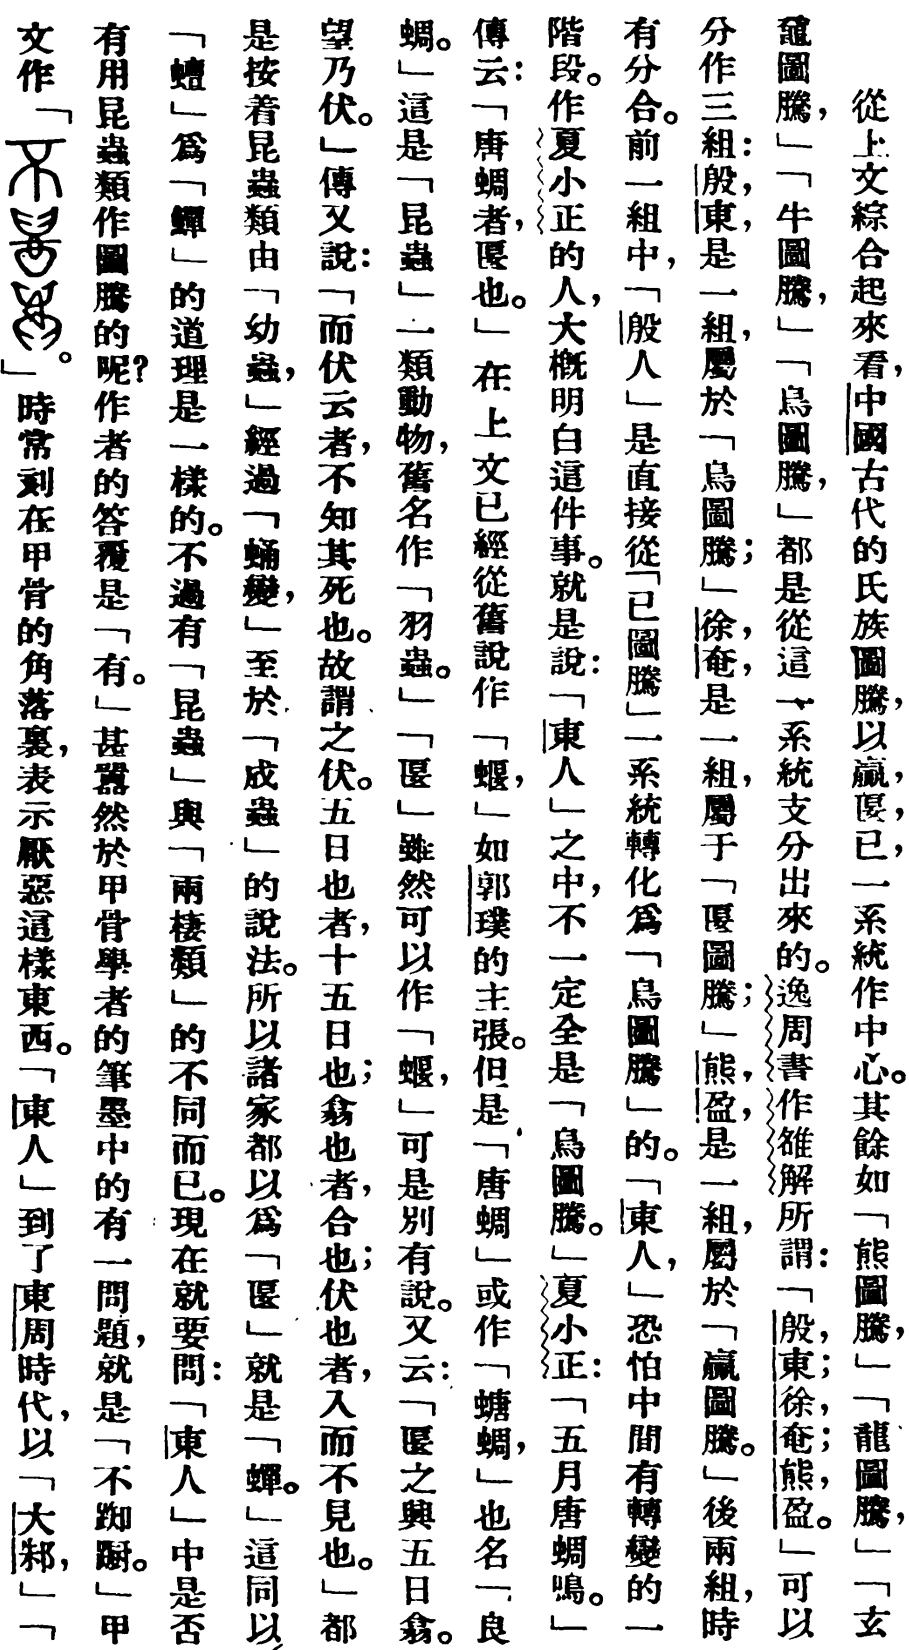 從上文綜合起來看，中國古代的氏族圖騰，以蠃，匽，已，一系統作中心。其餘如「熊圖騰，」「龍圖騰，」「玄
黿圖騰，」「牛圖騰，」「鳥圖騰，」都是從這一系統支分出來的。逸周書作雒解所謂：「殷，東；徐，奄；熊，盈。」可以
分作三組：殷，東，是一組，屬於「鳥圖騰；」徐，奄，是一組，屬于「匽圖騰；」熊，盈，是一組，屬於「蠃圖騰。」後兩組，時
有分合。前一組中，「殷人」是直接從「已圖騰」一系統轉化爲「鳥圖騰」的。「東人，」恐怕中間有轉變的一
階段。作夏小正的人，大概明白這件事。就是說：「東人」之中，不一定全是「鳥圖騰。」夏小正：「五月唐蜩鳴。」
傳云：「唐蜩者，匽也。」在上文已經從舊說作「蝘，」如郭璞的主張。但是「唐蜩」或作「螗蜩，」也名「良
蜩。」這是「昆蟲」一類動物，舊名作「羽蟲。」「匽」雖然可以作「蝘，」可是別有說。又云：「匽之興五日翕。
望乃伏。」傳又說：「而伏云者，不知其死也。故謂之伏。五日也者，十五日也；翕也者，合也；伏也者，入而不見也。」都
是按着昆蟲類由「幼蟲，」經過「蛹變，」至於「成蟲」的說法。所以諸家都以爲「匽」就是「蟬。」這同以
「蟺」爲「鱓」的道理是一樣的。不過有「昆蟲」與「兩棲類」的不同而已。現在就要問：「東人」中是否
有用昆蟲類作圖騰的呢？作者的答覆是「有。」甚囂然於甲骨學者的筆墨中的有一問題，就是「不踟蹰。」甲
文作「。」時常刻在甲骨的角落裏，表示厭惡這樣東西。「東人」到了東周時代，以「大邾，」「